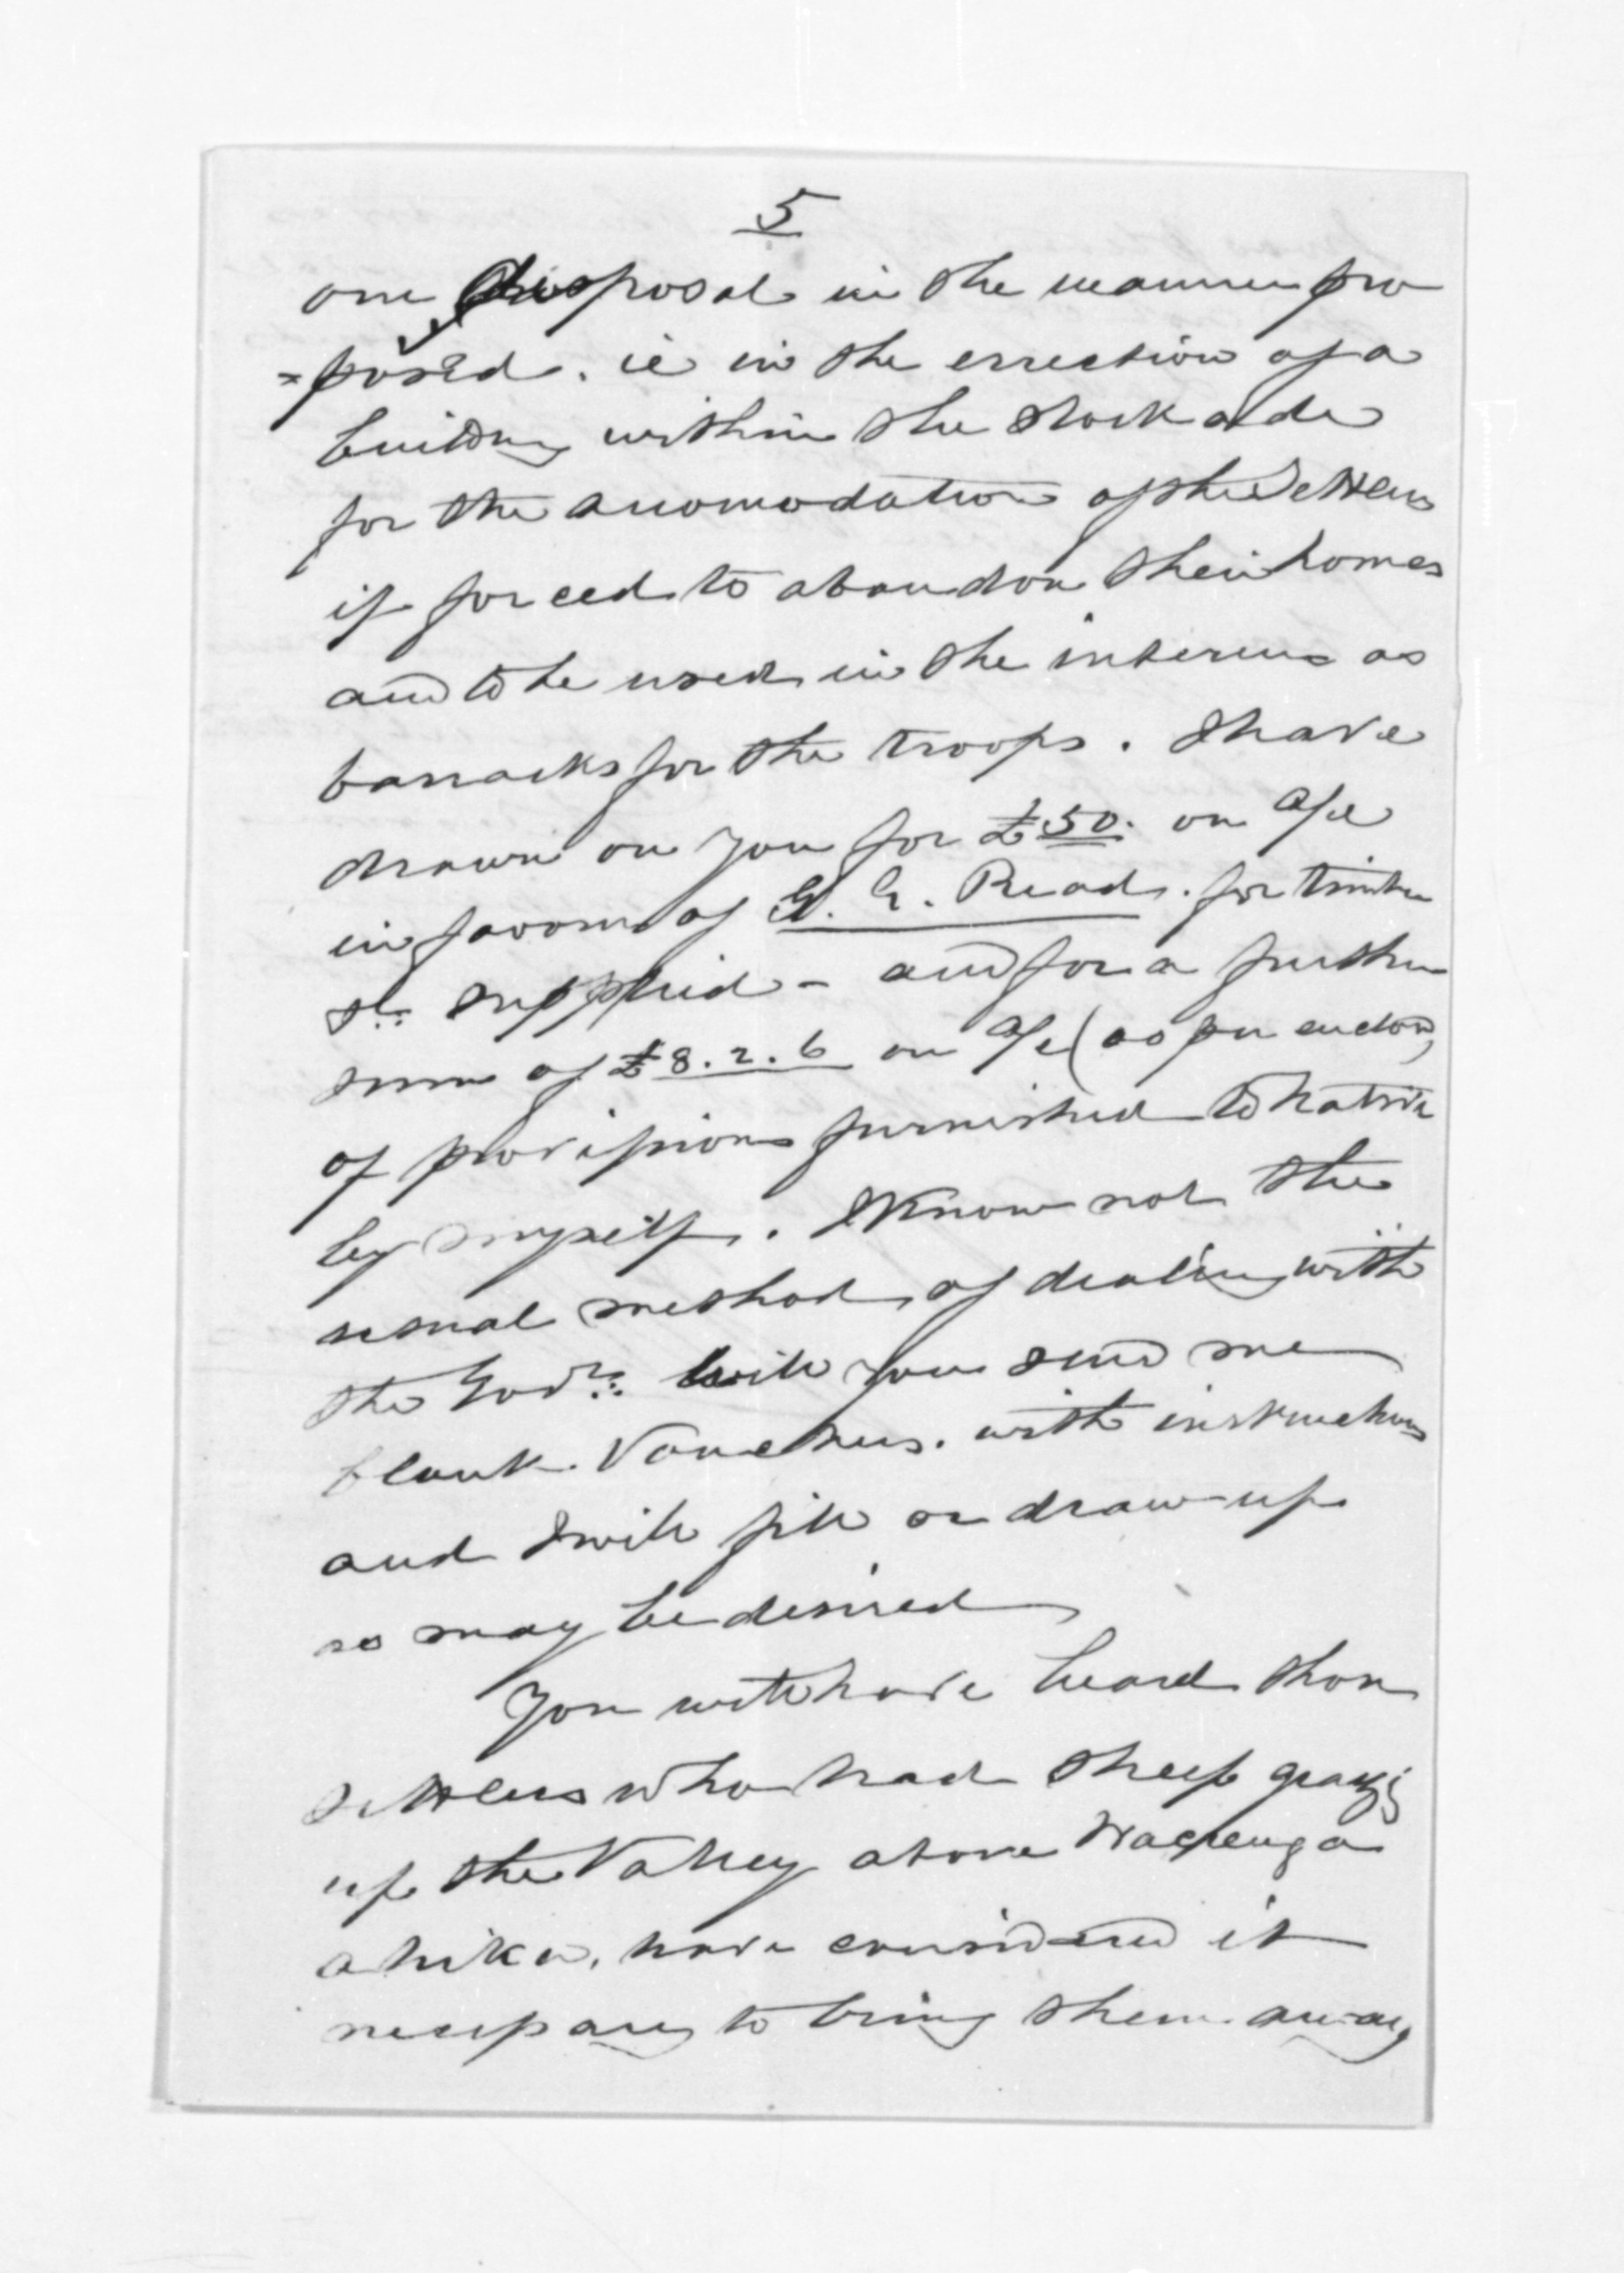 5
our disposal in the manner pro
=posed. ie in the errection of a
building within the stockade
for the accomodation of the Settlers
if forced to abandon their homes
and to be used in the interim as
barracks for the troops. I have
drawn on you for £50. on a/c
in favour of G. E. Read. for timber
&c: supplied - and for a further
sum of £8.2.6 on a/c (as per endorsd)
of provisions furnished to natives
by myself. I know not the
usual method of dealing with
the Govt: Will you send me
blank Vouchers. with instructions
and I will fill or draw up
as may be desired
You will have heard that
settlers who had sheep grazg
up the Valley above Waerenga
a hika, have considered it
necessary to bring them away